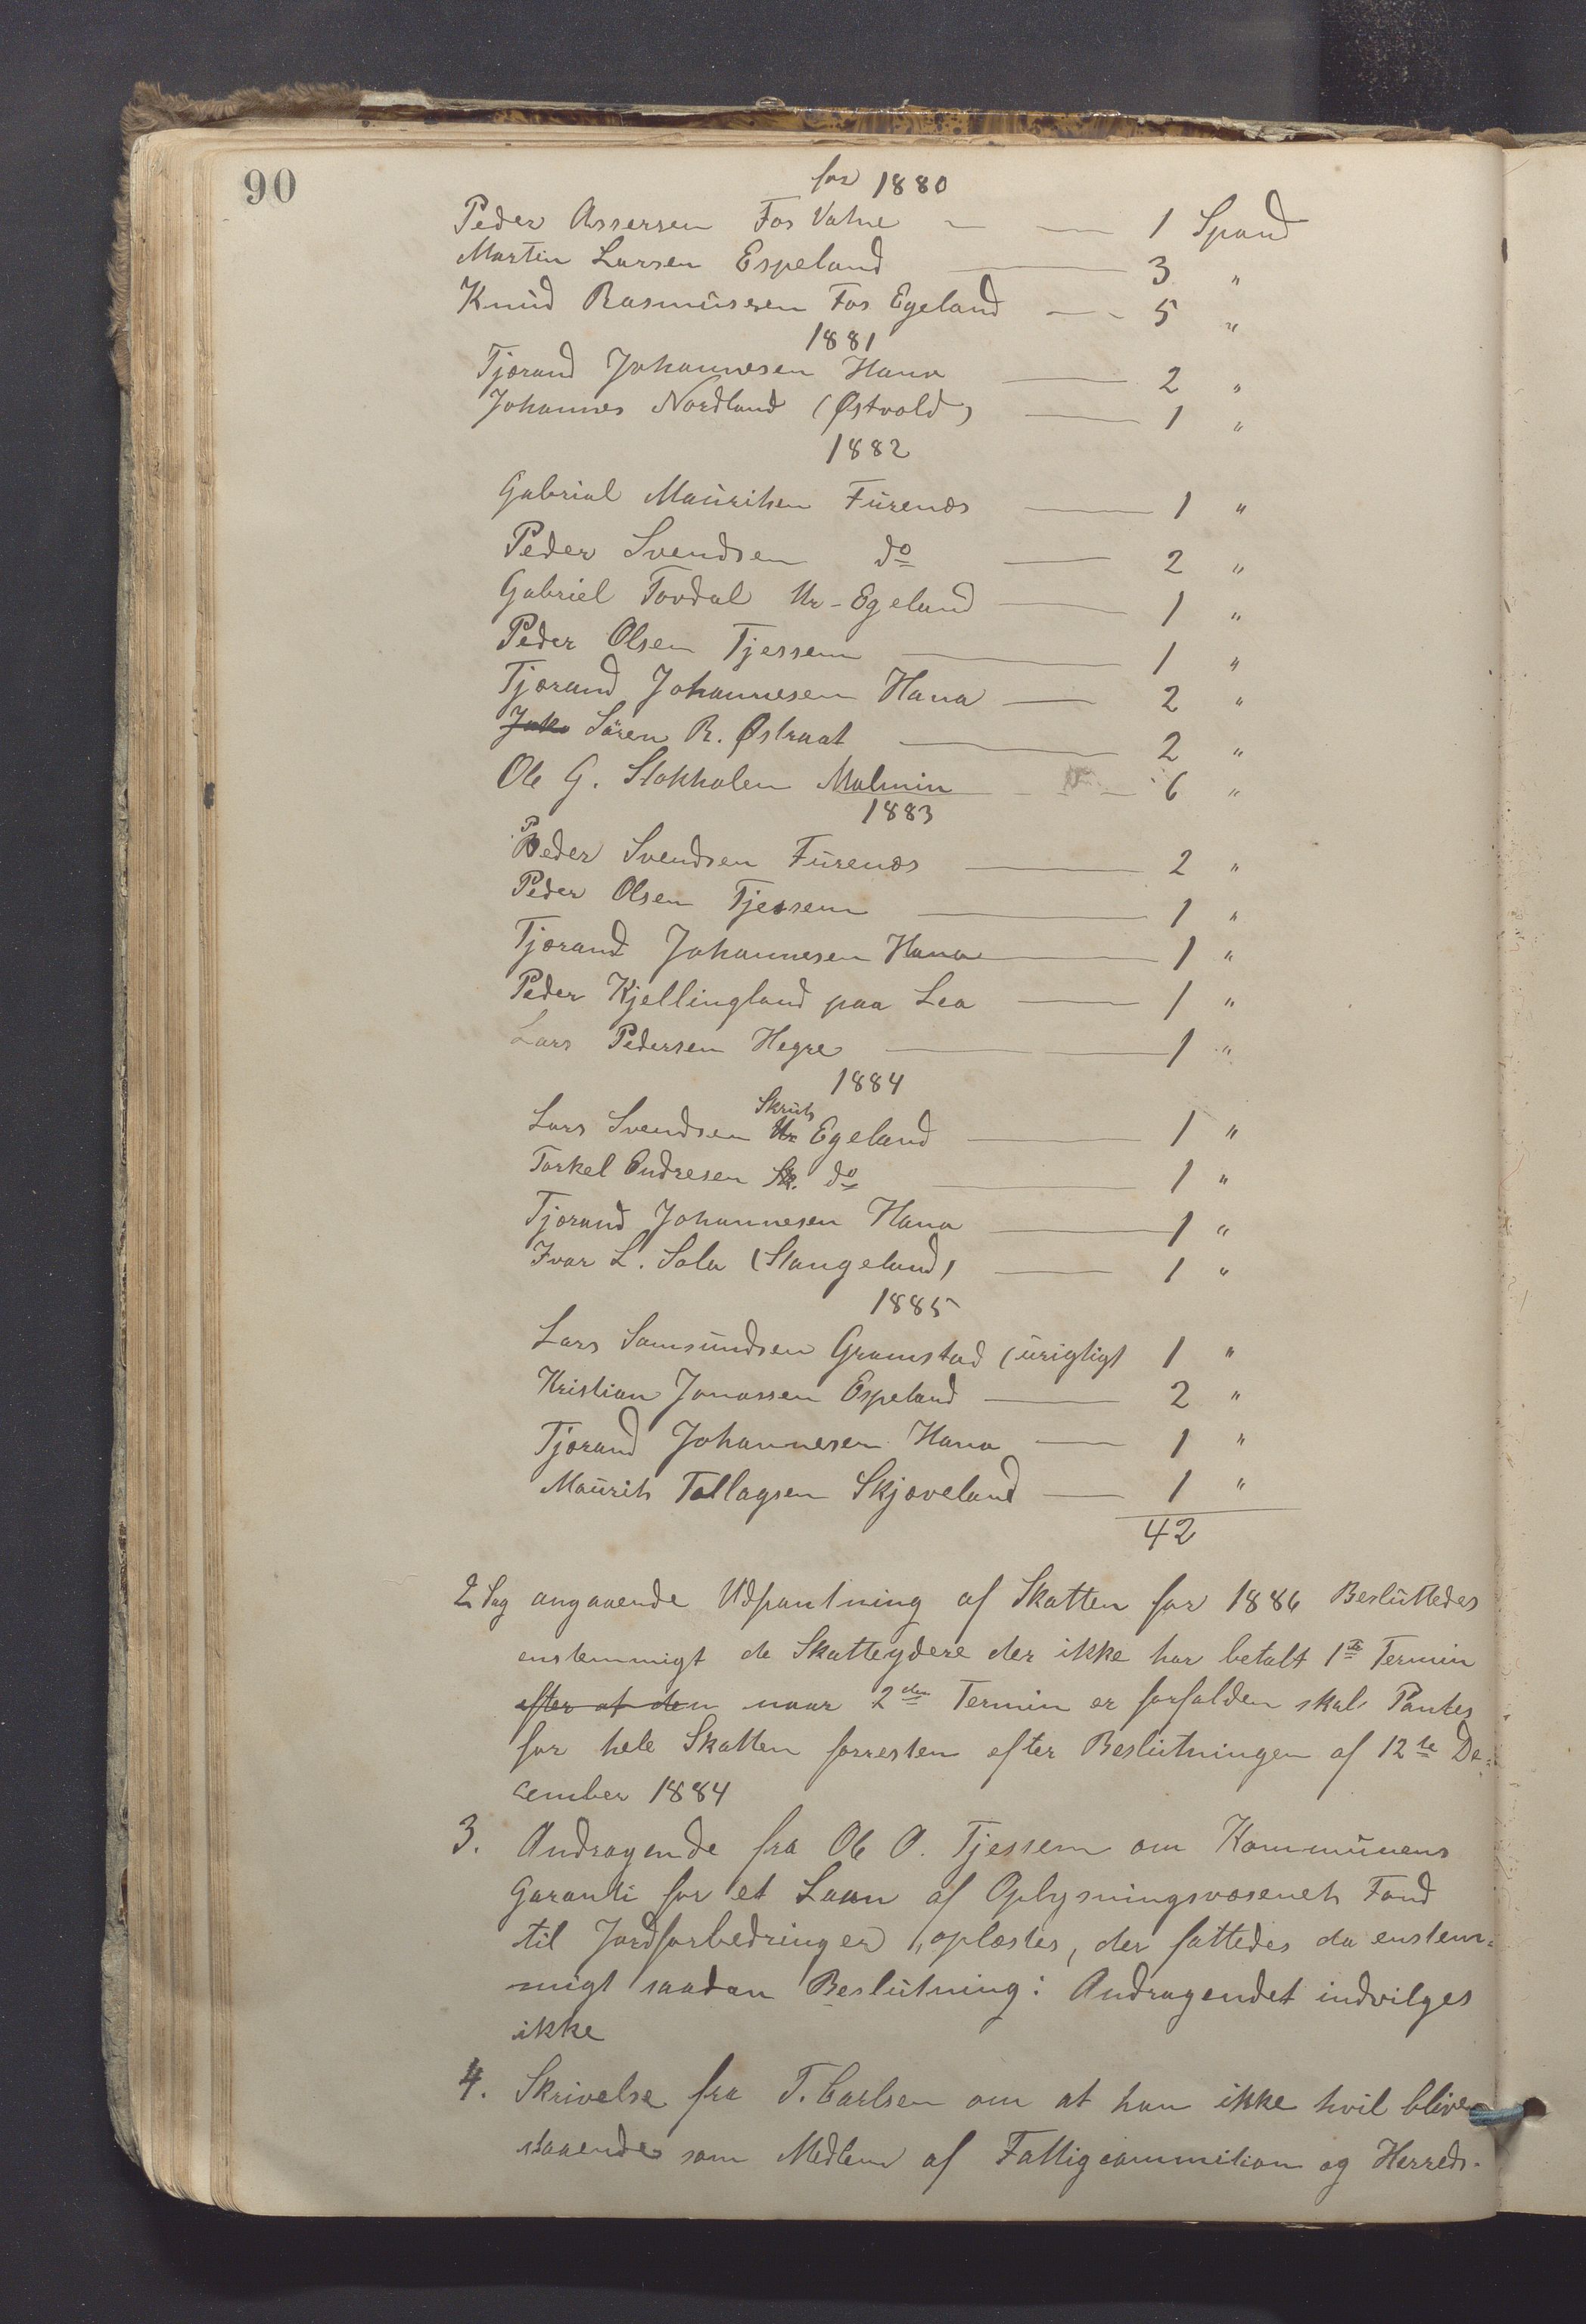 90
for 1880
Peder Assersen Fos Vatne — — 1 Spand
Martin Larsen Espeland — 3 "
Knud Rasmussen Fos Egeland — - 5 "
1881
Tjørand Johannesen Hana — 2 "
Johannes Nordland (Østvold) — 1 "
1882
Gabriel Mauritsen Furenes — 1 "
Peder Svendsen do — 2 "
Gabriel Tovdal Ur-Egeland — 1 "
Peder Olsen Tjessem — 1 "
Tjørand Johannesen Hana — 2 "
Joh Sören R. Østraat — 2 "
Ole G. Stokholen Malmin - - — 6 "
1883
Peder Svendsen Furenes — 2 "
Peder Olsen Tjessem — 1 "
Tjørand Johannesen Hana — 1 "
Peder Kjellingland paa Lea — 1 "
Lars Pedersen Hegre — 1 "
1884
Skruts
Lars Svendsen Ur Egeland — 1 "
Torkel Endresen Sk. do — 1 "
Tjørand Johannesen Hana — 1 "
Ivar L. Sola (Stangeland) — 1 "
1885
Lars Samsundsen Gramstad (urigtigt 1 "
Kristian Jonassen Espeland — 2 "
Tjørand Johannesen Hana — 1 "
Maurits Tollagsen Skjæveland — 1 "
42
2 Sag angaaende Udpantning af Skatten for 1886 Besluttedes
enstemmigt de Skatteydere der ikke har betalt 1ste Termin
efter at den naar 2den Termin er forfalden skal Pantes
for hele Skatten forresten efter Beslutningen af 12te De=
cember 1884
3. Andragende fra Ole O. Tjessem om Kommunens
Garanti for et Laan af Oplysningsvæsenets Fond
til Jordforbedringer, oplæstes, der fattedes da enstem=
migt saadan Beslutning: Andragendet indvilges
ikke
4. Skrivelse fra T. Carlsen om at han ikke hvil blive
staaende som Medlem af Fattigcommition og Herreds-